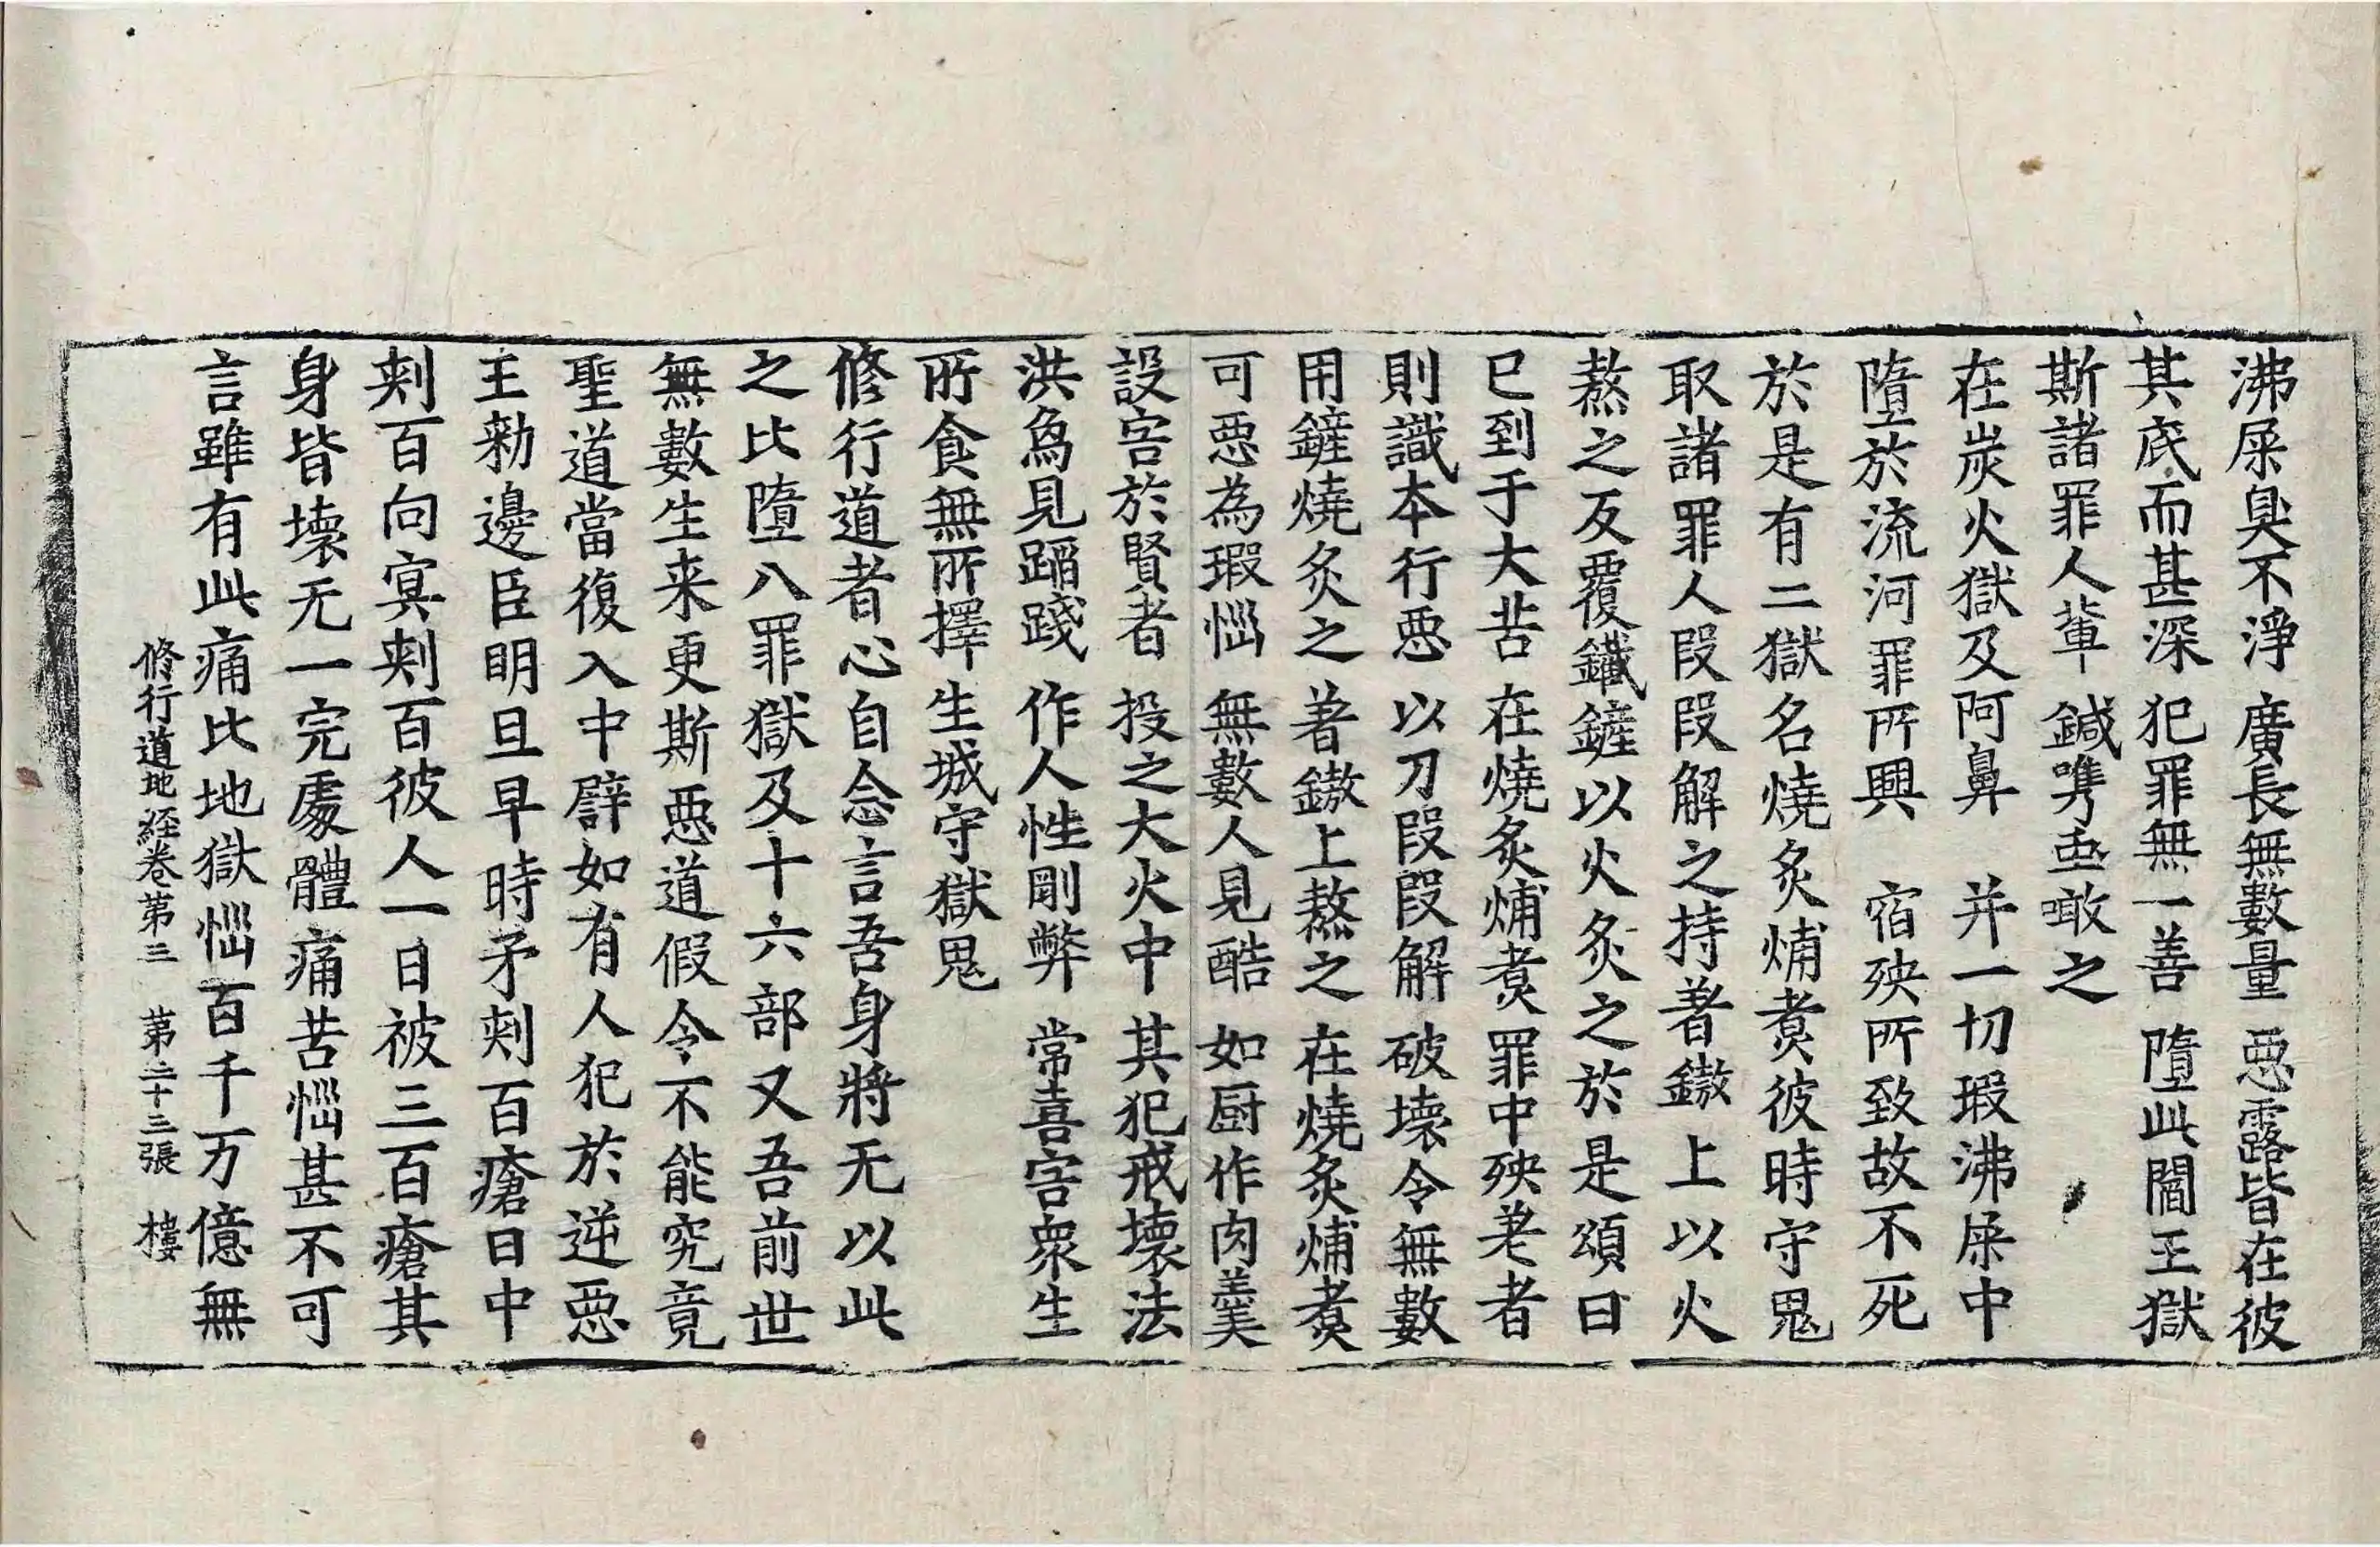 沸屎臭不淨　廣長無數量　惡露皆在彼
其底而甚深　犯罪無一善　墮此閻王獄
斯諸罪人輩　鍼㭰虫噉之
在炭火獄及阿鼻　并一切瑕沸屎中
墮於流河罪所興　宿殃所致故不死
於是有二獄名燒炙煿煑彼時守鬼
取諸罪人段段解之持著鏊上以火
熬之反覆鐵鏟以火炙之於是頌曰
已到于大苦　在燒炙煿煑　罪中殃老者
則識本行惡　以刀段段解　破壞令無數
用鏟燒炙之　著鏊上熬之　在燒炙煿煑
可惡為瑕惱　無數人見酷　如厨作肉羹
設害於賢者　投之大火中　其犯戒壞法
洪爲見蹈踐　作人性剛弊　常喜害衆生
所食無所擇　生城守獄鬼
修行道者心自念言吾身將无以此
之比墮八罪獄及十六部又吾前世
無數生来更斯惡道假令不能究竟
聖道當復入中譬如有人犯於逆惡
王勑邊臣明旦早時矛刾百瘡日中
刾百向㝠刾百彼人一日被三百瘡其
身皆壞无一完處體痛苦惱甚不可
言雖有此痛比地獄惱百千万億無
修行道地経卷第三　第二十三張　樓